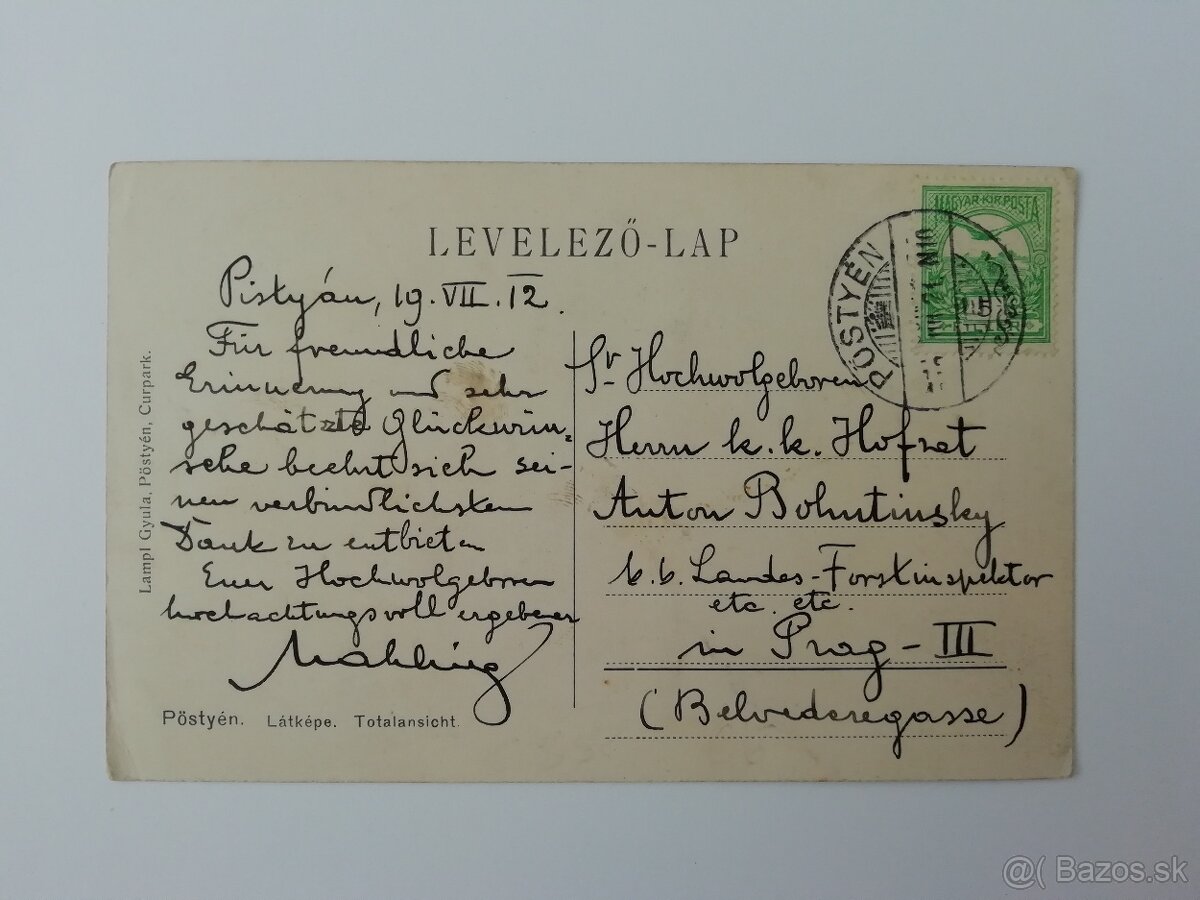 LEVELEZŐ-LAP
Pistyán, 19. VII. 12.
Für freundliche
Erinnerung und sehr
geschätzte Glückwün-
sche beehrt sich sei-
nen verbindlichsten
Dank zu entbieten
Euer Hochwolgeboren
hochachtungsvoll ergebener
Pöstyén. Látképe. Totalansicht.
Lampl Gyula, Pöstyén, Curpark.
MAGYAR·KIR·POSTA
PÖSTYÉN
Sr Hochwolgeboren
Herrn k. k. Hofrat
Anton Bohutinsky
k. k. Landes-Forstinspektor
etc. etc.
in Prag - III
(Belvederegasse)
@( Bazos.sk